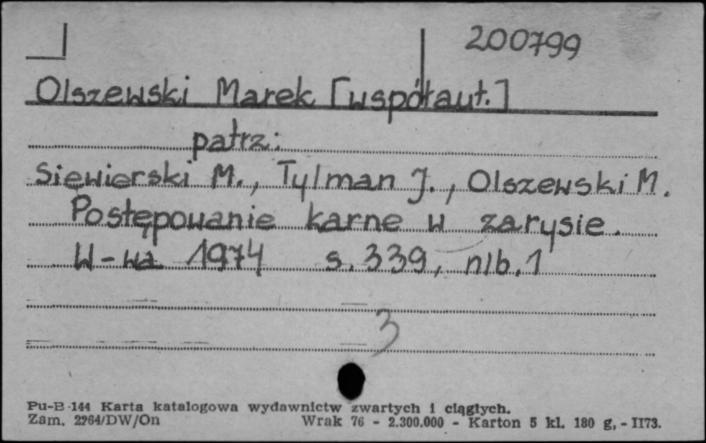 200799
Olszewski Marek [współaut.]
patrz:
Siewierski M., Tylman J., Olszewski M.
Postępowanie karne w zarysie.
W-wa 1974 s. 339, nlb. 1
3
Pu-B-144 Karta katalogowa wydawnictw zwartych i ciągłych.
Zam. 2264/DW/On Wrak 76 - 2.300.000 - Karton 5 kl. 180 g, - II73.